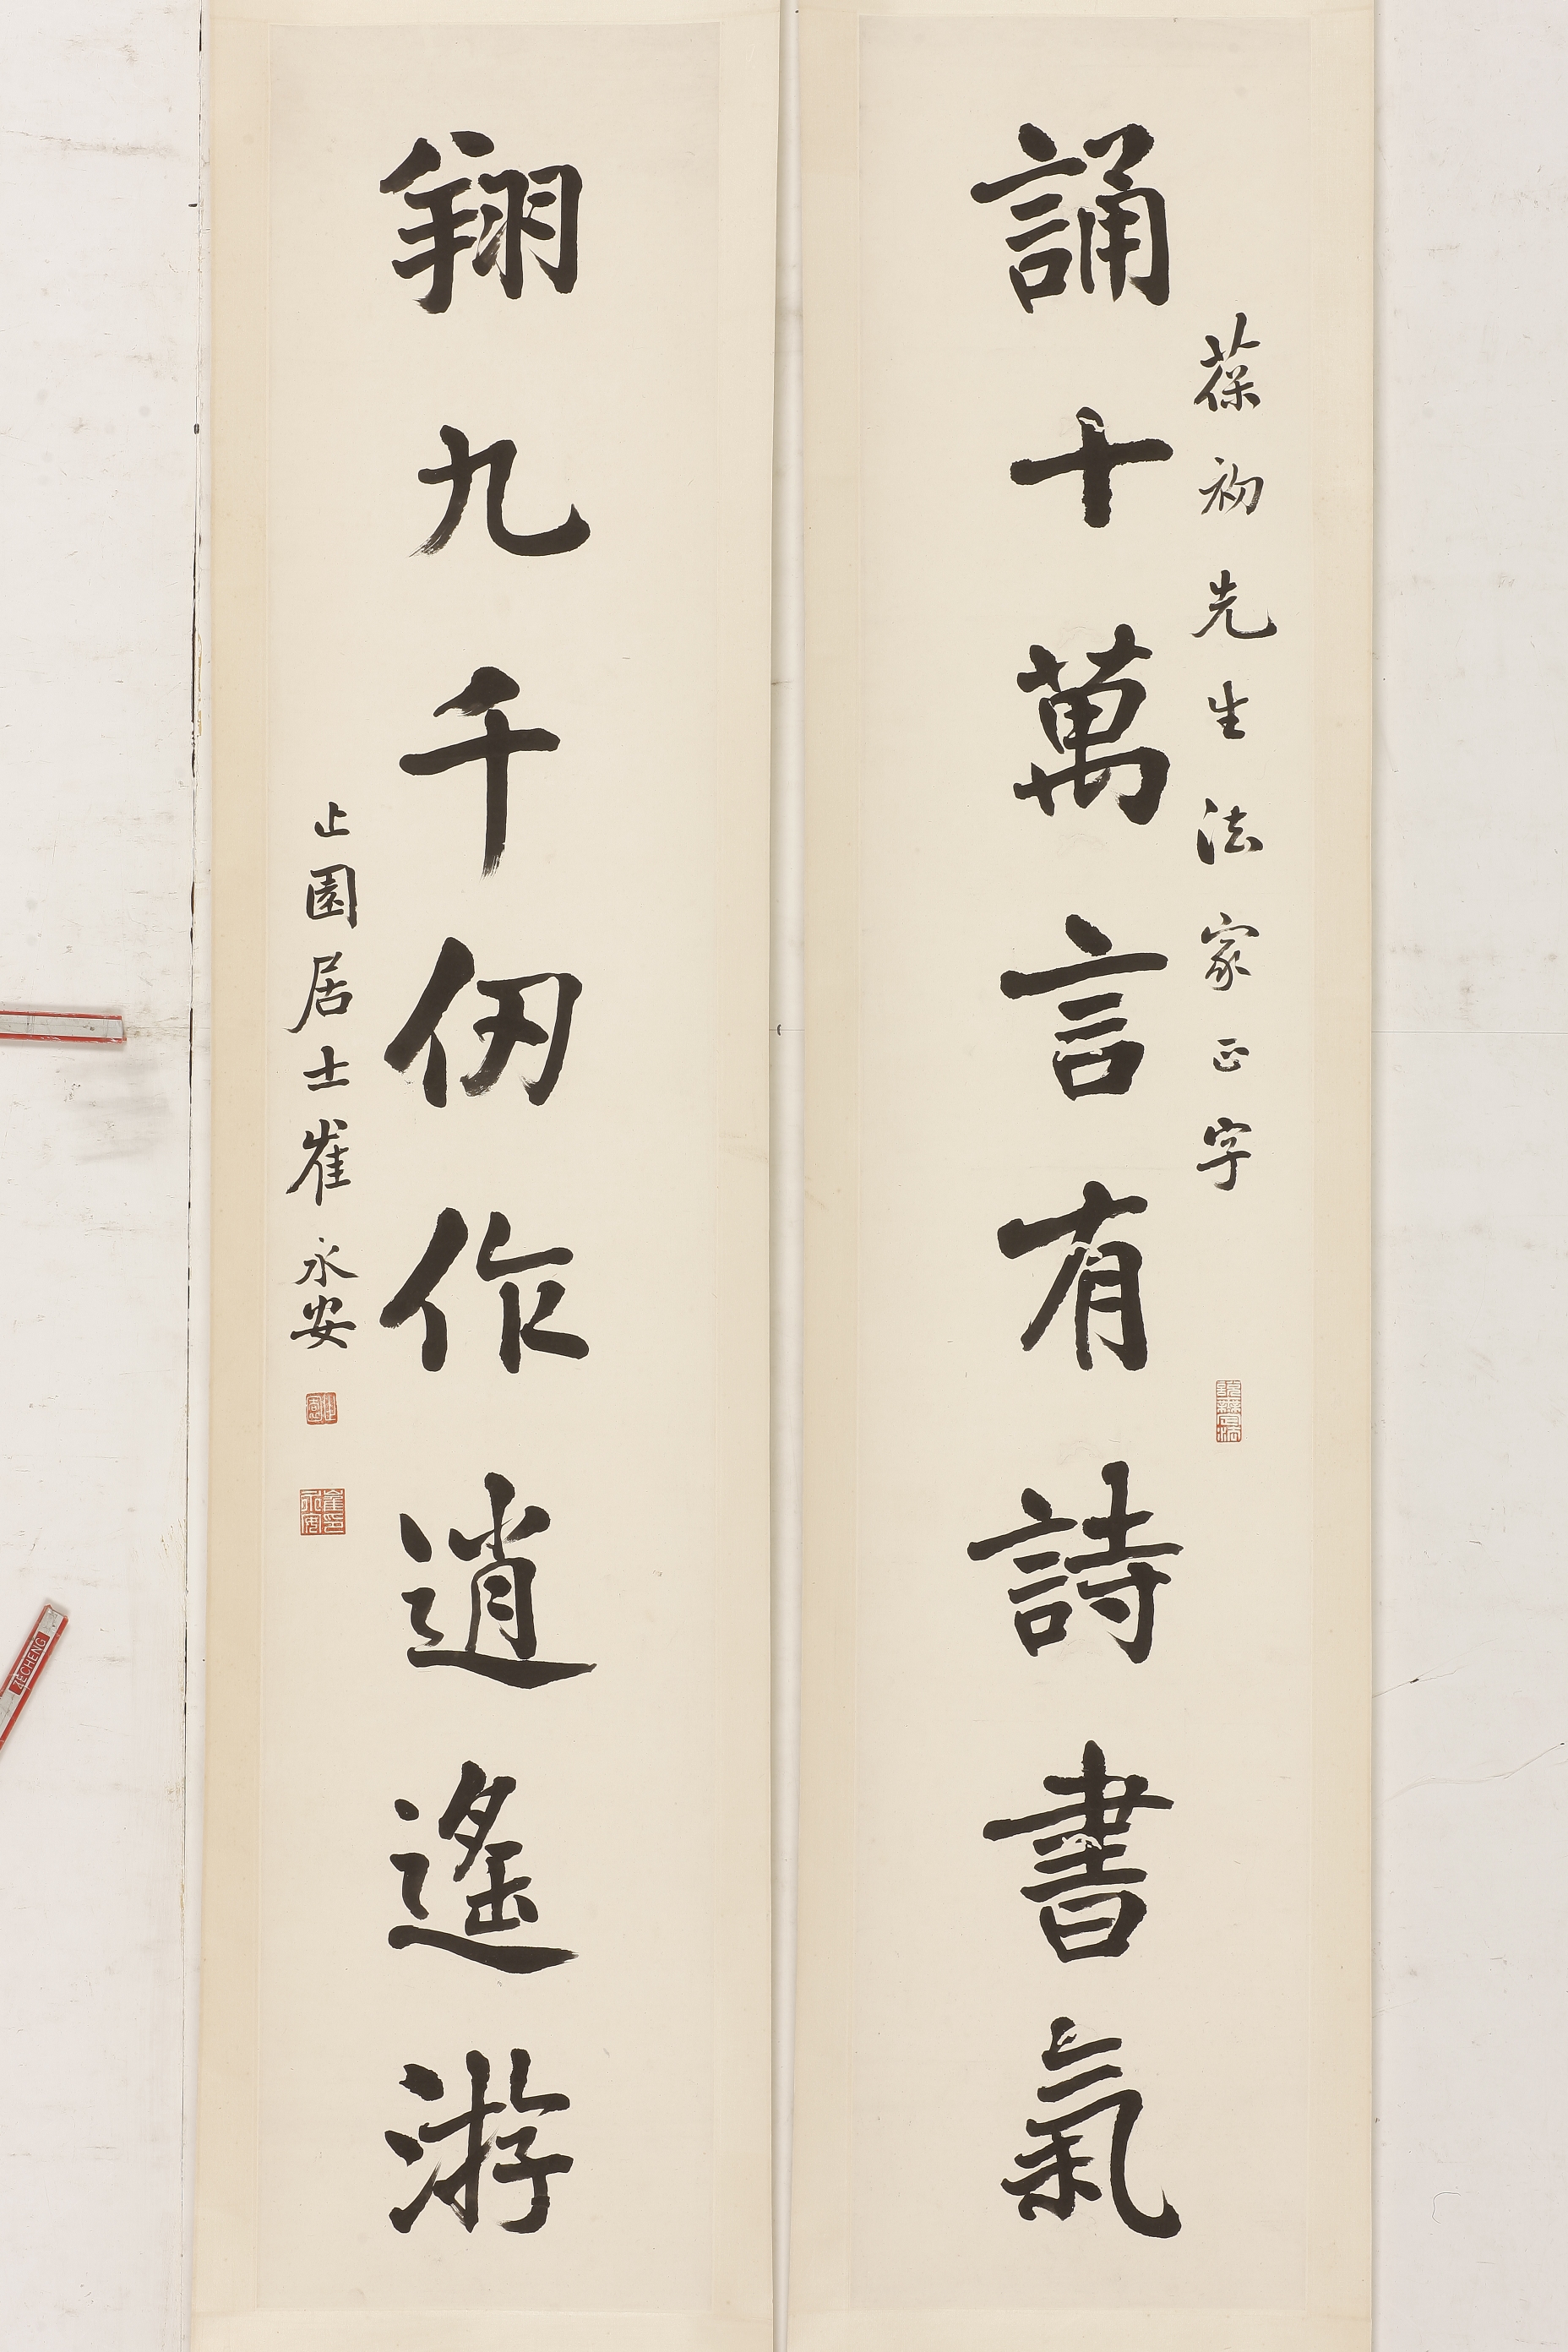 葆初先生法家正字
誦十萬言有詩書氣
翔九千仞作逍遙游
止園居士崔永安
崔印永安
ZECHENG